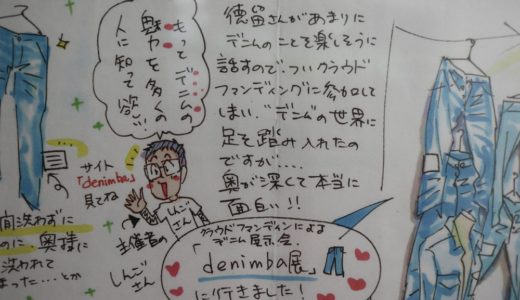 もっとデニムの
魅力を多くの
人に知って欲…
徳留さんがあまりに
デニムのことを楽しそうに
話すので、ついクラウド
ファンディングに参加して
しまい、"デニム"の世界に
足を踏み入れたの
ですが….
奥が深くて本当に
面白い!!
サイト
「denimba」
見てね
しんご
さん
主催者の
しんごさん
間洗わずに
のに、奥様に
洗われて
まった……とか
クラウドファンディングによる
デニム展示会.
「denimba展」
に行きました!